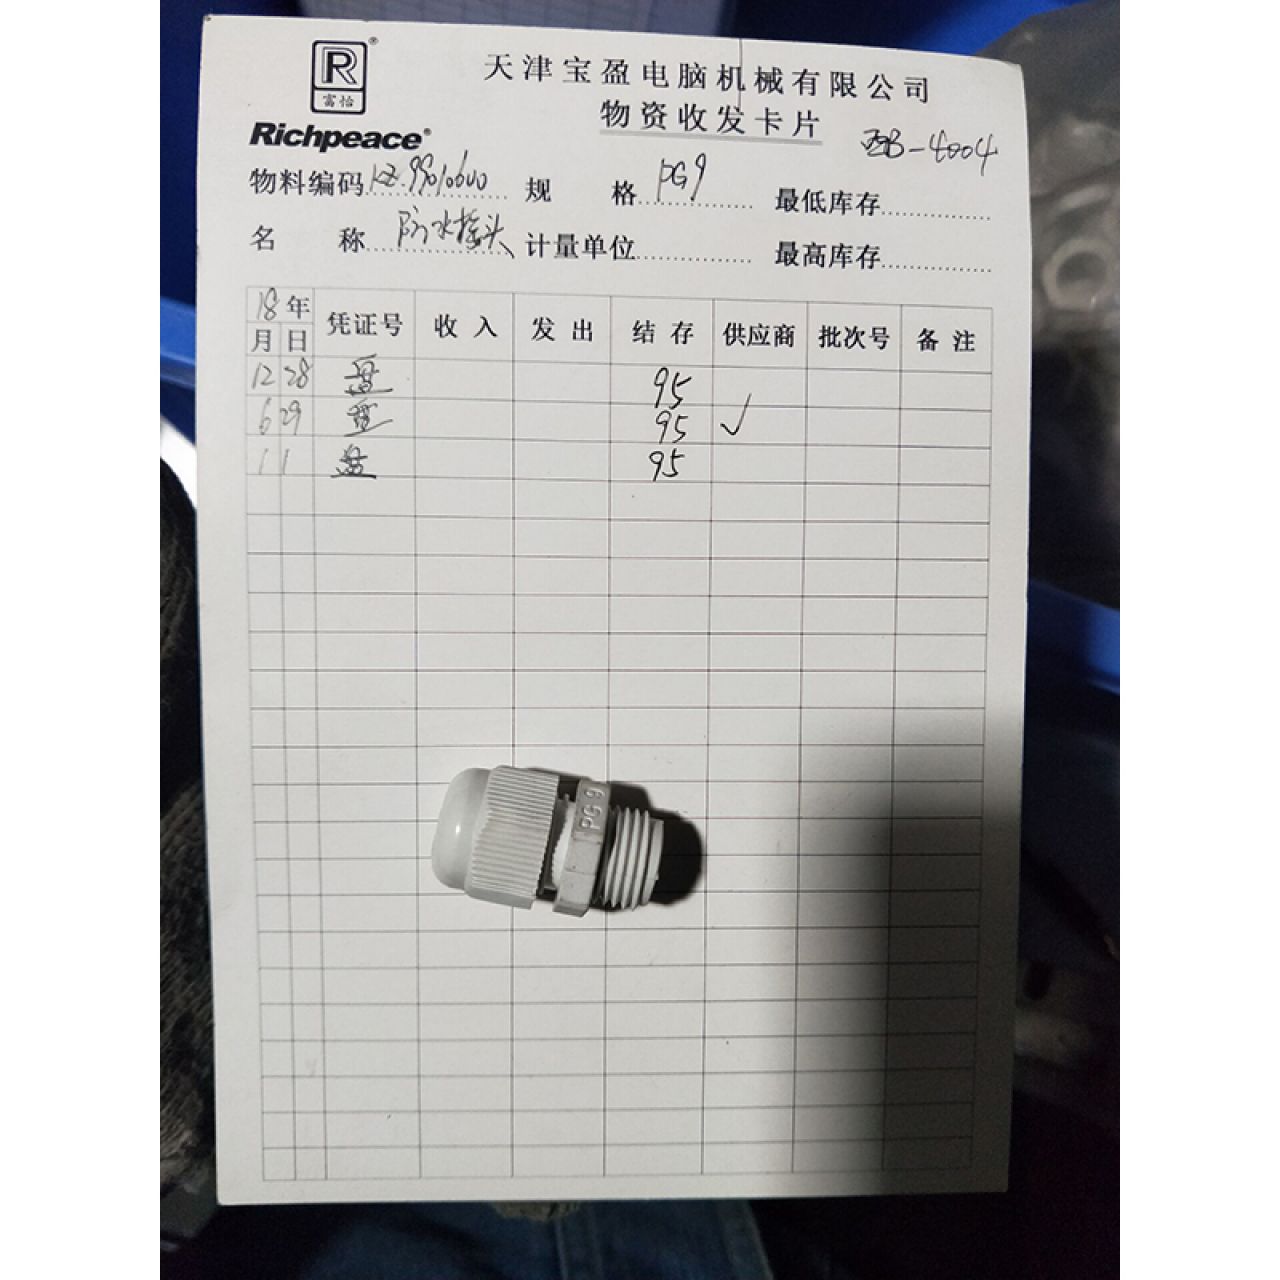 R
富怡
Richpeace
天津宝盈电脑机械有限公司
物资收发卡片
-4004
物料编码 规格 PG9 最低库存
名称 防水接头 计量单位 最高库存
18年 凭证号 收入 发出 结存 供应商 批次号 备注
月 日
12 28 盘 95
6 29 盘 95 ✓
1 1 盘 95
PG 9